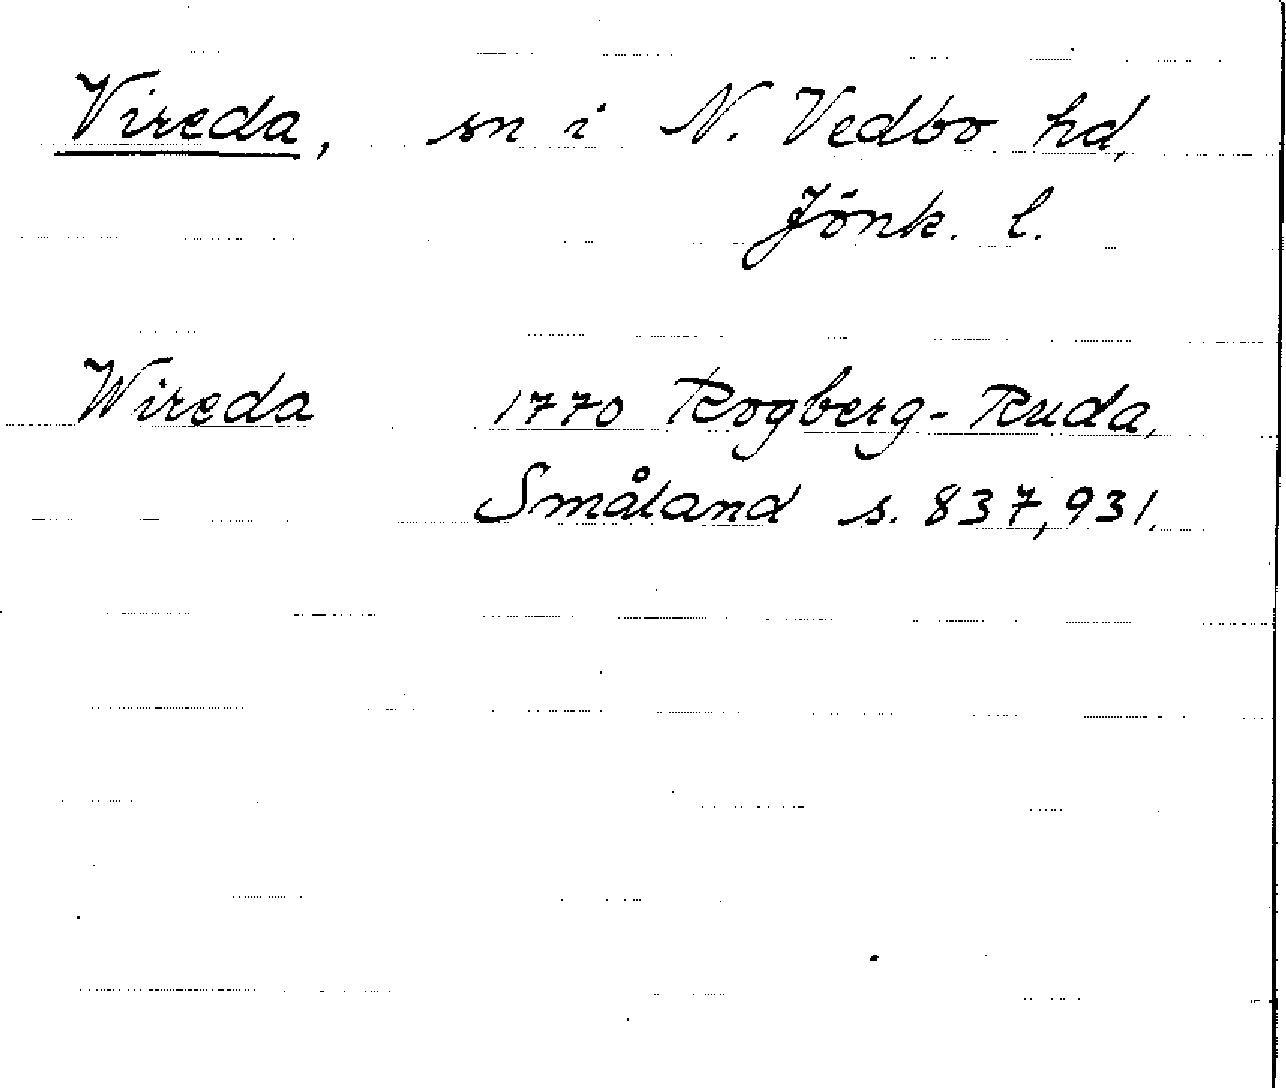 Vireda, sn i N. Vedbo hd,
Jönk. l.
Wireda 1770 Rogberg-Ruda,
Småland s. 837,931.